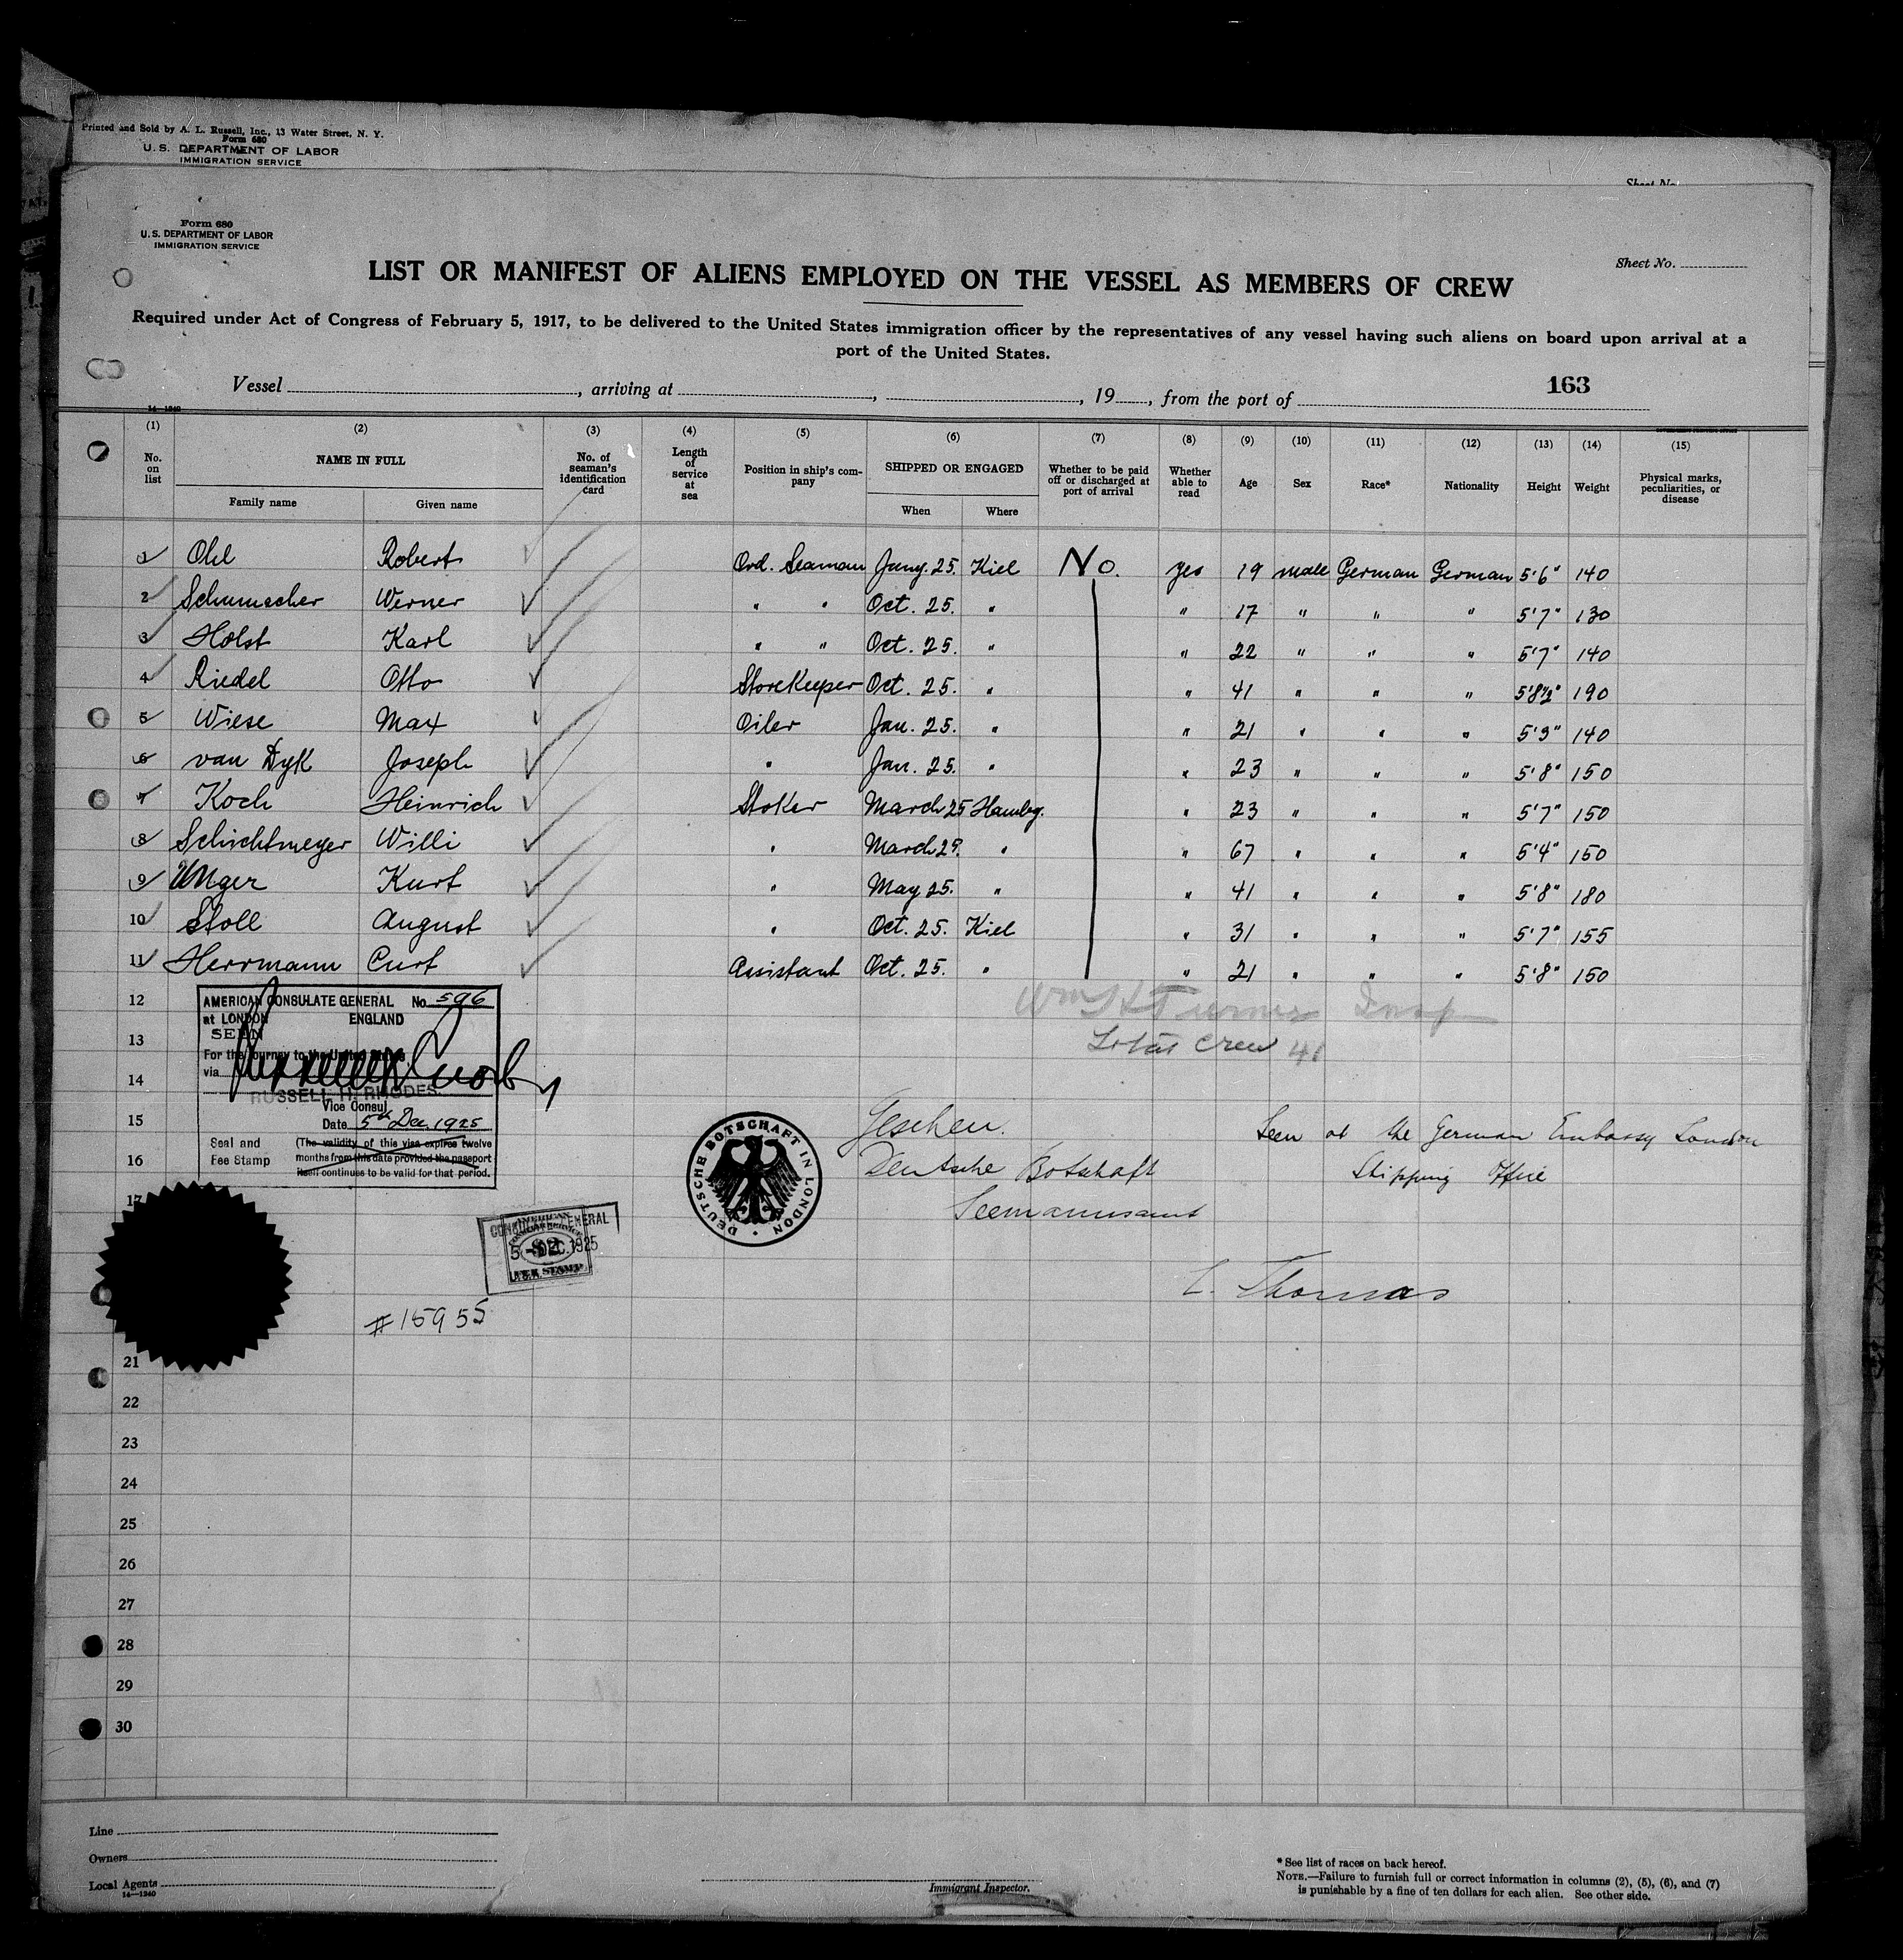 Printed and Sold by A. L. Russell, Inc., 13 Water Street, N. Y.
Form 680
U. S. DEPARTMENT OF LABOR
IMMIGRATION SERVICE
Sheet No.
Form 680
U. S. DEPARTMENT OF LABOR
IMMIGRATION SERVICE
Sheet No.
LIST OR MANIFEST OF ALIENS EMPLOYED ON THE VESSEL AS MEMBERS OF CREW
Required under Act of Congress of February 5, 1917, to be delivered to the United States immigration officer by the representatives of any vessel having such aliens on board upon arrival at a
port of the United States.
163
Vessel , arriving at , , 19 , from the port of
14—1240
(1) (2) (3) (4) (5) (6) (7) (8) (9) (10) (11) (12) (13) (14) (15)
No. on list NAME IN FULL No. of seaman's identification card Length of service at sea Position in ship's company SHIPPED OR ENGAGED Whether to be paid off or discharged at port of arrival Whether able to read Age Sex Race* Nationality Height Weight Physical marks, peculiarities, or disease
Family name Given name When Where
1 Ohl Robert Ord. Seaman Jany. 25. Kiel No. yes 19 male German German 5'6" 140
2 Schumacher Werner " " Oct. 25. " " 17 " " " 5'7" 130
3 Holst Karl " " Oct. 25. " " 22 " " " 5'7" 140
4 Riedel Otto StoreKeeper Oct. 25. " " 41 " " " 5'8½" 190
5 Wiese Max Oiler Jan. 25. " " 21 " " " 5'9" 140
6 van Dyk Joseph " Jan. 25. " " 23 " " " 5'8" 150
7 Koch Heinrich Stoker March 25 Hambg. " 23 " " " 5'7" 150
8 Schichtmeyer Willi " March 29. " " 67 " " " 5'4" 150
9 Unger Kurt " May 25. " " 41 " " " 5'8" 180
10 Stoll August " Oct. 25. Kiel " 31 " " " 5'7" 155
11 Herrmann Curt Assistant Oct. 25. " " 21 " " " 5'8" 150
12
13
14
15
16
17
21
22
23
24
25
26
27
28
29
30
AMERICAN CONSULATE GENERAL No. 596
at LONDON ENGLAND
SEEN
For the journey to the United States
via
RUSSELL H. RHODES.
Vice Consul
Date 5th Dec. 1925
Seal and Fee Stamp
(The validity of this visa expires twelve
months from this date provided the passport
itself continues to be valid for that period.
Wm H Turner Insp
Total Crew 41
DEUTSCHE BOTSCHAFT IN LONDON
Gesehen.
Deutsche Botschaft
Seemannsamt
Seen at the German Embassy London
Shipping Office
C. Thomas
CONSULATE GENERAL
5 - DEC. 1925
#15955
Line
Owners
Local Agents
14—1240
Immigrant Inspector.
* See list of races on back hereof.
NOTE.—Failure to furnish full or correct information in columns (2), (5), (6), and (7)
is punishable by a fine of ten dollars for each alien. See other side.